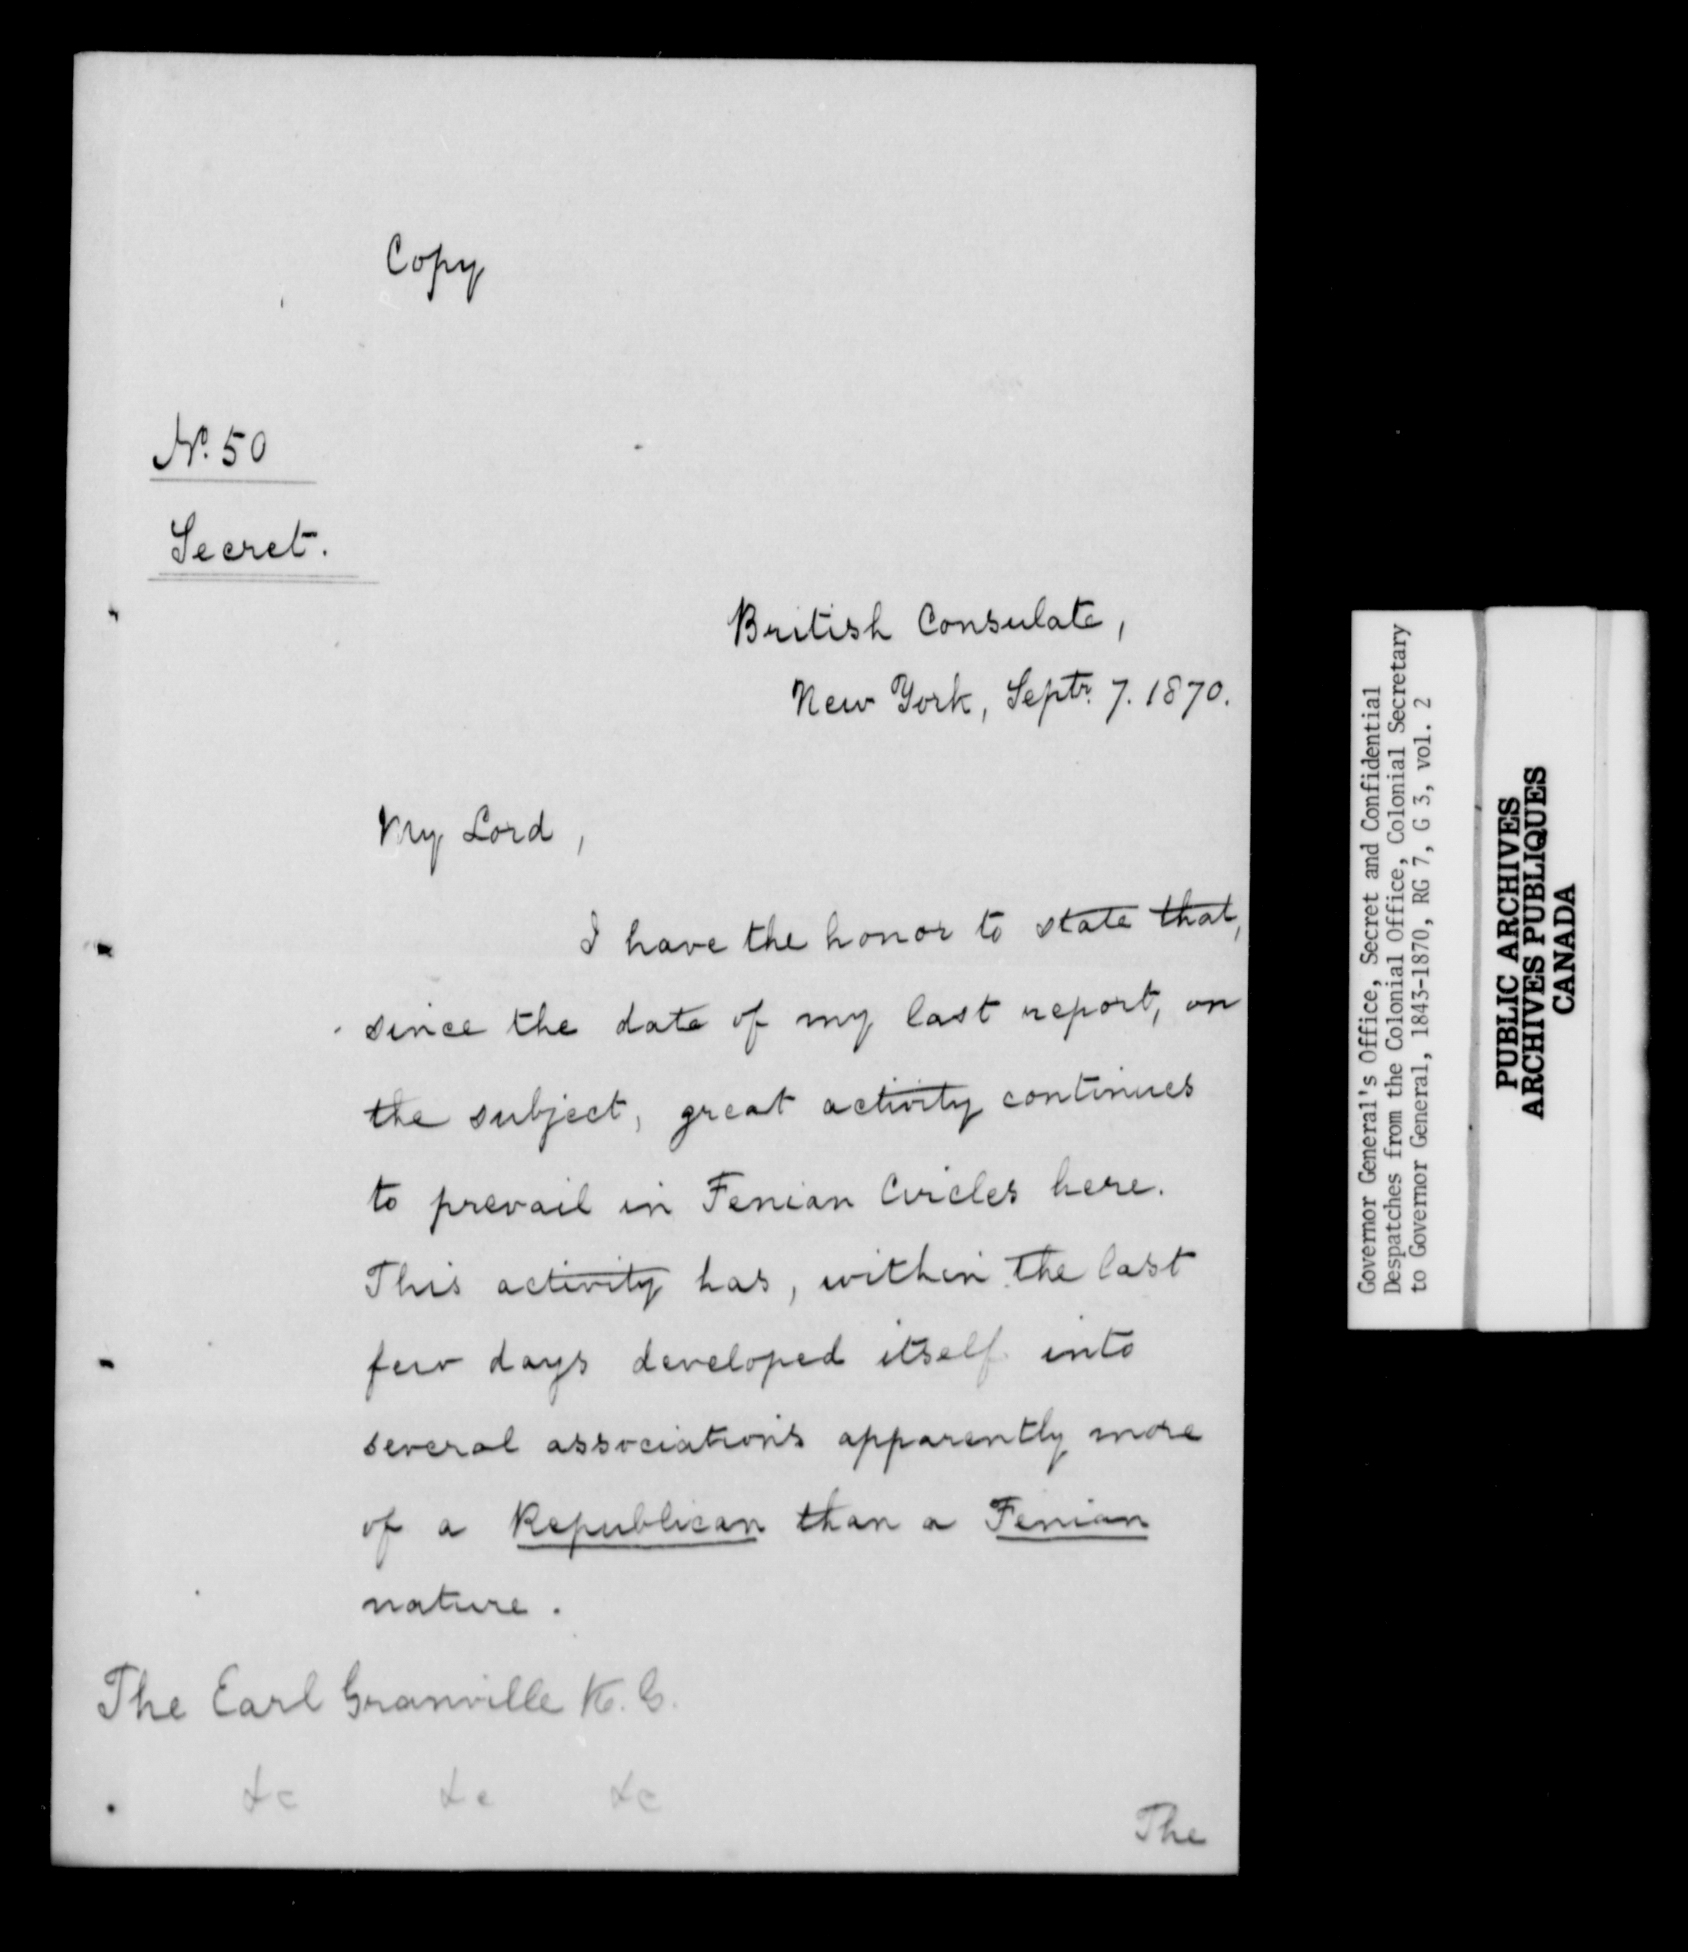 Copy
No. 50
Secret.
British Consulate,
New York, Septr. 7. 1870.
My Lord,
I have the honor to state that,
since the date of my last report, on
the subject, great activity continues
to prevail in Fenian Circles here.
This activity has, within the last
few days developed itself into
several associations apparently more
of a Republican than a Fenian
nature.
The Earl Granville K. G.
&c &c &c
The
Governor General's Office, Secret and Confidential
Despatches from the Colonial Office, Colonial Secretary
to Governor General, 1843-1870, RG 7, G 3, vol. 2
PUBLIC ARCHIVES
ARCHIVES PUBLIQUES
CANADA